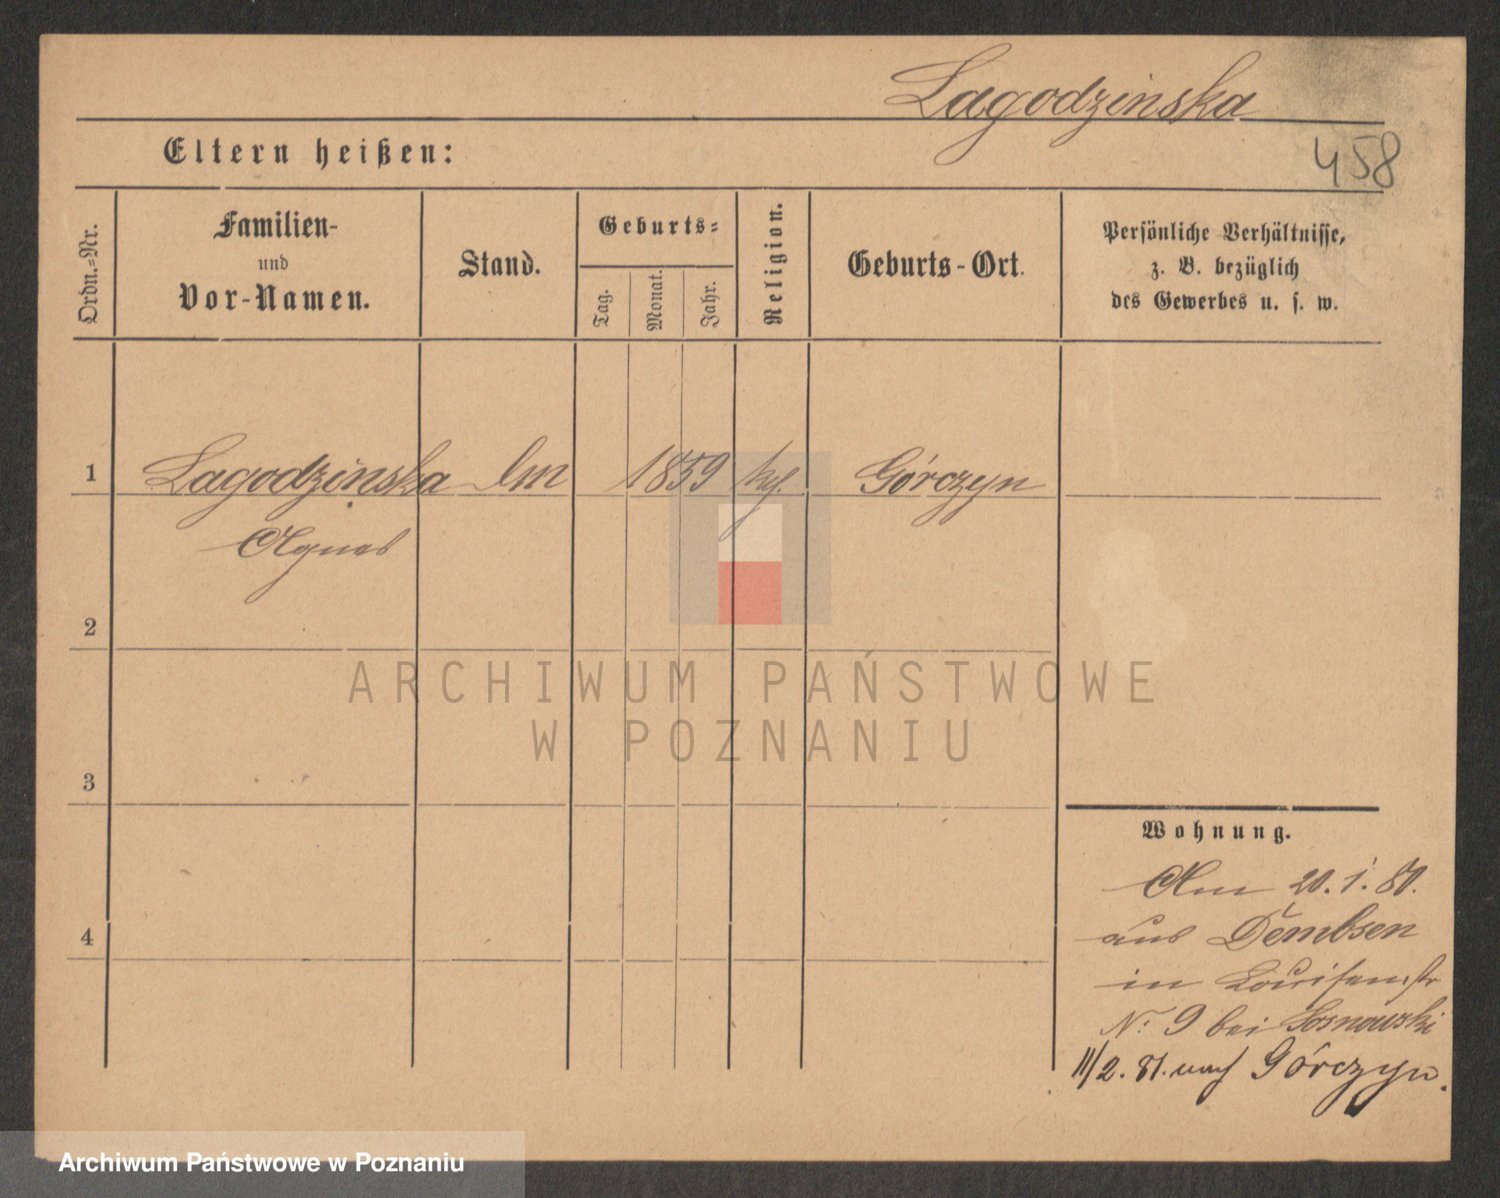 Lagodzinska
458
Eltern heißen:
Ordn.-Nr.
Familien-
und
Vor-Namen.
Stand.
Geburts-
Tag.
Monat.
Jahr.
Religion.
Geburts-Ort.
Persönliche Verhältnisse,
z. B. bezüglich
des Gewerbes u. s. w.
1 Lagodzinska 1859 Górczyn
Agnes
2
3
4
Wohnung.
Am 20.1.80.
aus Dembsen
in Louisenstr
N: 9 bei Sosnowski
11/2. 81. nach Górczyn.
ARCHIWUM PAŃSTWOWE
W POZNANIU
Archiwum Państwowe w Poznaniu